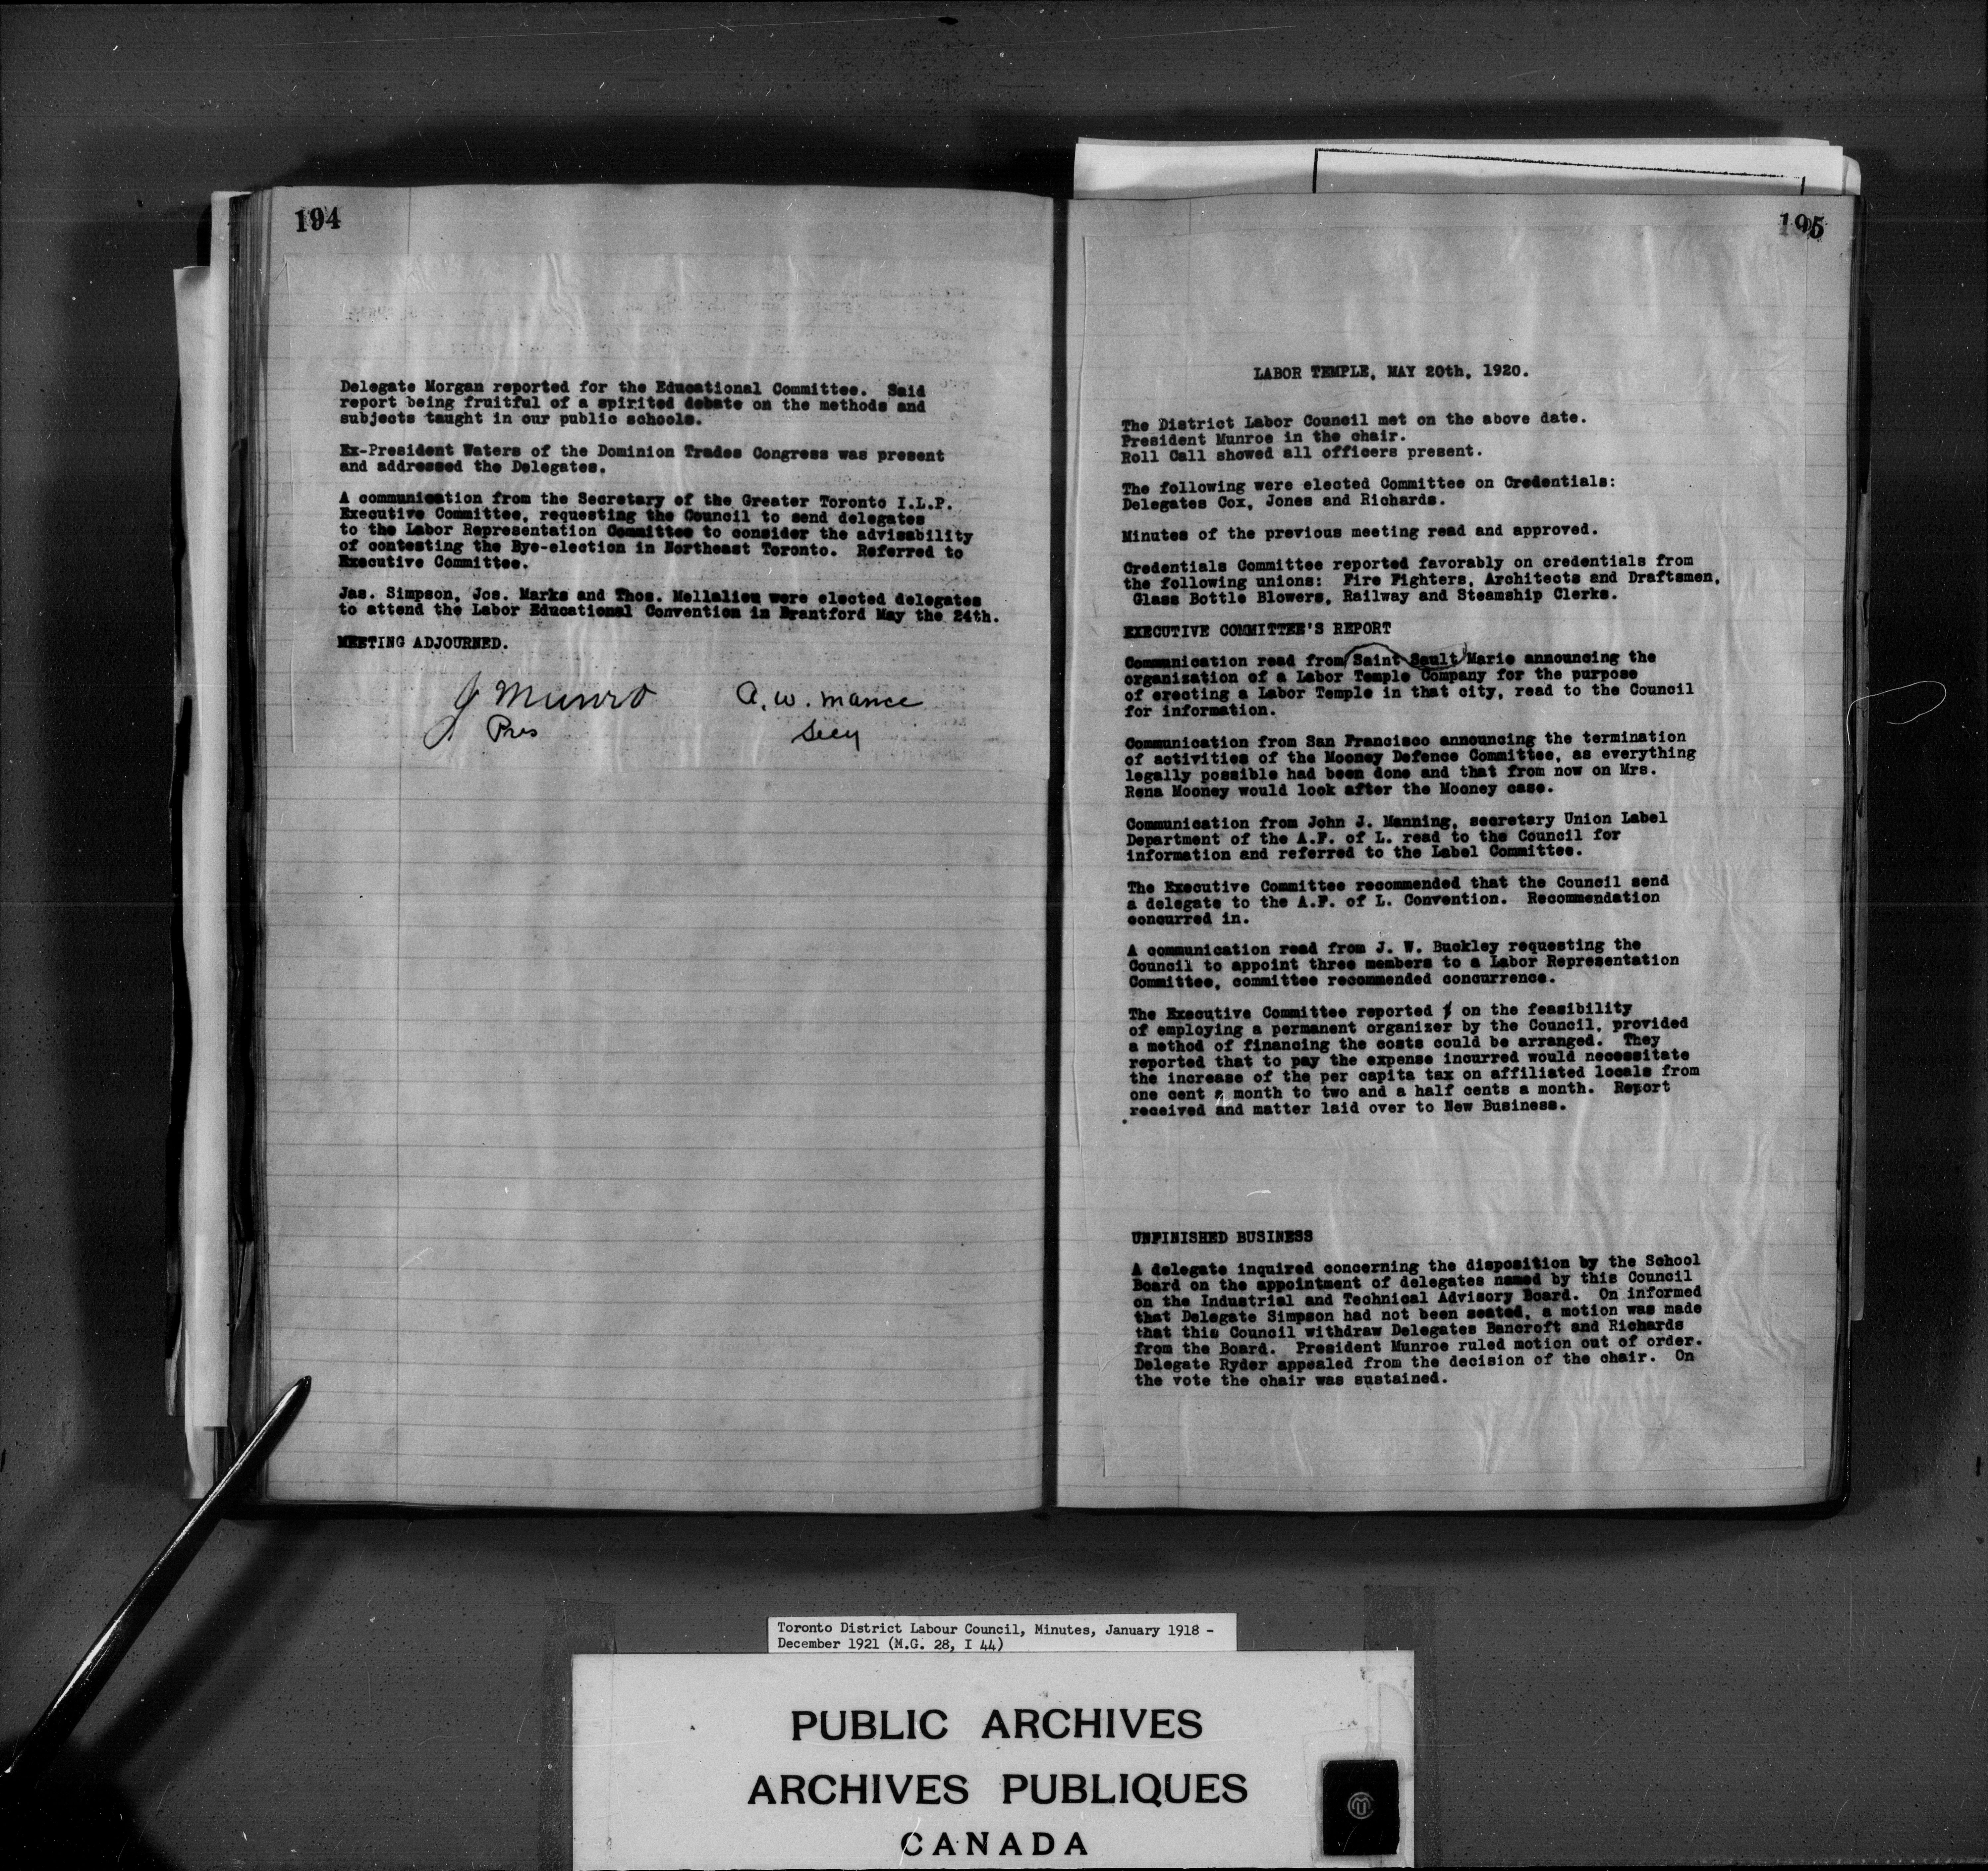 194
Delegate Morgan reported for the Educational Committee. Said
report being fruitful of a spirited debate on the methods and
subjects taught in our public schools.
Ex-President Waters of the Dominion Trades Congress was present
and addressed the Delegates.
A communication from the Secretary of the Greater Toronto I.L.P.
Executive Committee, requesting the Council to send delegates
to the Labor Representation Committee to consider the advisability
of contesting the Bye-election in Northeast Toronto. Referred to
Executive Committee.
Jas. Simpson, Jos. Marks and Thos. Mellalieu were elected delegates
to attend the Labor Educational Convention in Brantford May the 24th.
MEETING ADJOURNED.
J Munro A. W. Mance
Pres Secy
195
LABOR TEMPLE, MAY 20th, 1920.
The District Labor Council met on the above date.
President Munroe in the chair.
Roll Call showed all officers present.
The following were elected Committee on Credentials:
Delegates Cox, Jones and Richards.
Minutes of the previous meeting read and approved.
Credentials Committee reported favorably on credentials from
the following unions: Fire Fighters, Architects and Draftsmen,
Glass Bottle Blowers, Railway and Steamship Clerks.
EXECUTIVE COMMITTEE'S REPORT
Communication read from Saint Sault Marie announcing the
organization of a Labor Temple Company for the purpose
of erecting a Labor Temple in that city, read to the Council
for information.
Communication from San Francisco announcing the termination
of activities of the Mooney Defence Committee, as everything
legally possible had been done and that from now on Mrs.
Rena Mooney would look after the Mooney case.
Communication from John J. Manning, secretary Union Label
Department of the A.F. of L. read to the Council for
information and referred to the Label Committee.
The Executive Committee recommended that the Council send
a delegate to the A.F. of L. Convention. Recommendation
concurred in.
A communication read from J. W. Buckley requesting the
Council to appoint three members to a Labor Representation
Committee, committee recommended concurrence.
The Executive Committee reported on the feasibility
of employing a permanent organizer by the Council, provided
a method of financing the costs could be arranged. They
reported that to pay the expense incurred would necessitate
the increase of the per capita tax on affiliated locals from
one cent a month to two and a half cents a month. Report
received and matter laid over to New Business.
UNFINISHED BUSINESS
A delegate inquired concerning the disposition by the School
Board on the appointment of delegates named by this Council
on the Industrial and Technical Advisory Board. On informed
that Delegate Simpson had not been seated, a motion was made
that this Council withdraw Delegates Bancroft and Richards
from the Board. President Munroe ruled motion out of order.
Delegate Ryder appealed from the decision of the chair. On
the vote the chair was sustained.
Toronto District Labour Council, Minutes, January 1918 -
December 1921 (M.G. 28, I 44)
PUBLIC ARCHIVES
ARCHIVES PUBLIQUES
CANADA